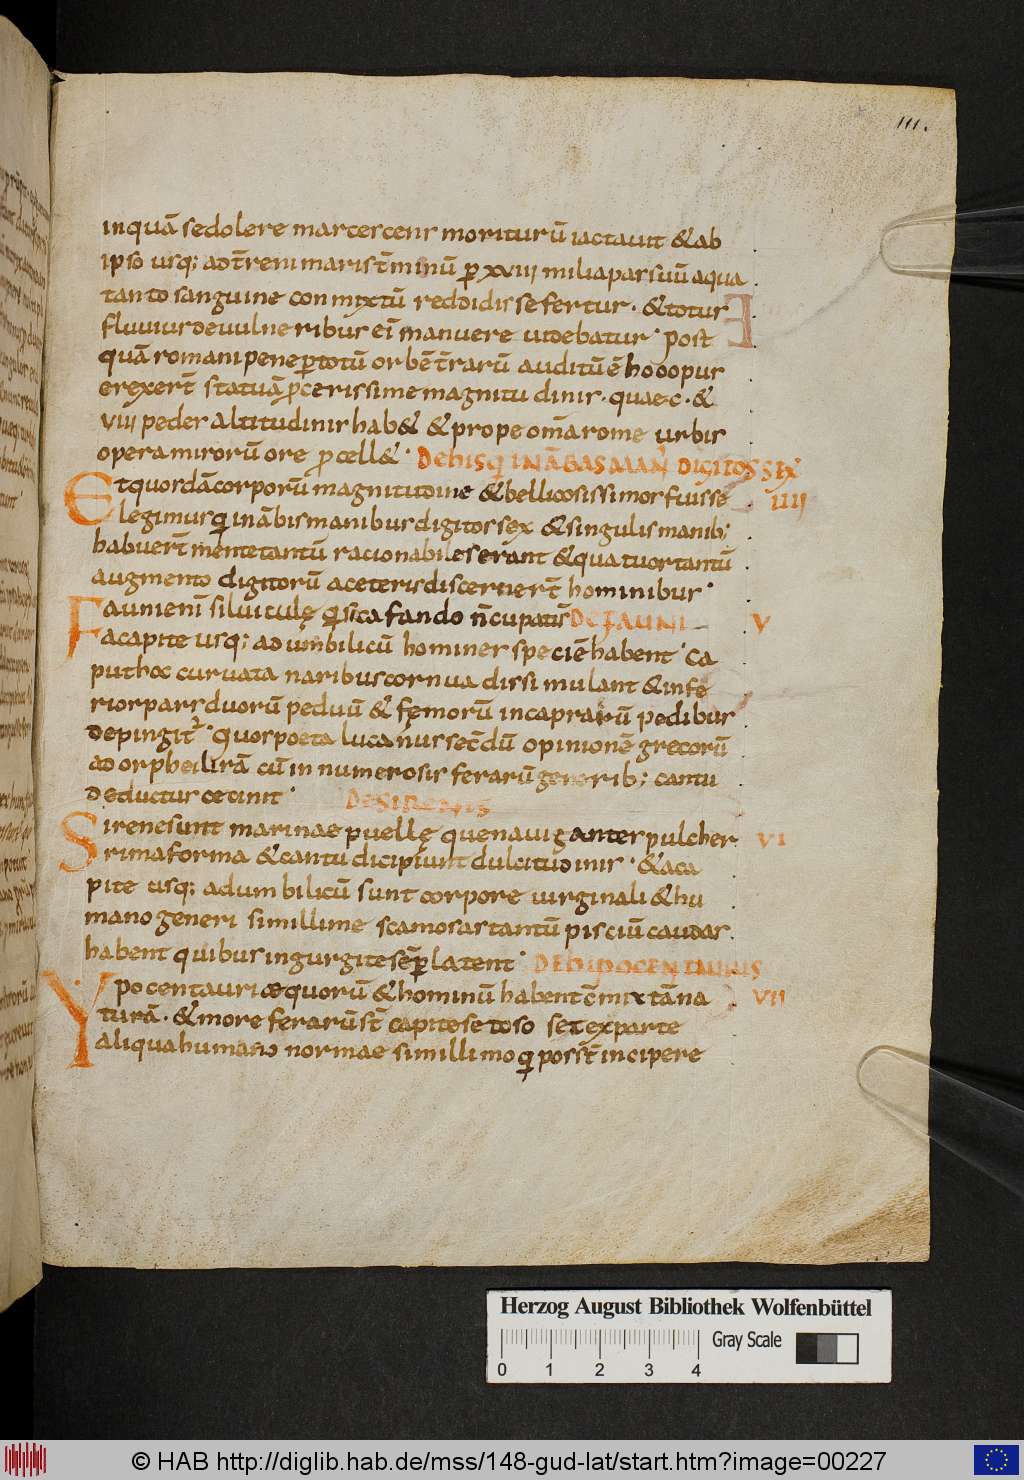 111.
inquā sedolere martescens moriturū iactauit & ab
ipso usq; adtr̄reni maris tr̄minū p̄ xviii milia passuū aqua
tanto sanguine conmixtū reddidisse fertur · & totus
fluuius deuulneribus ei manuere uidebatur · post
quā romani pene p̄totū orbē tr̄rarū auditū ē hoc opus
erexert̄ statuā p̄cerissime magnitudinis · quae · c · &
viii pedes altitudinis hab& & prope om̄a rome urbis
opera mirorū ore p̄cell& · DE HIS Q̄ IN ĀBAS MAN̄ DIGITOS SEX̄
Et quordā corporū magnitudine & bellicosissimos fuisse IIII
legimus q̄ in ābis manibus digitos sex & singulis manib;
habuert̄ mente tantū racionabiles erant & quatuor tantū
augmento digitorū aceteris discernert̄ hominibus ·
Fauni en̄ siluiculę qui sic a fando n̄cupatis̄ DE FAUNI V
acapite usq; ad umbilicū homines speciē habent · Ca
put hoc curuata naribus cornua dissimulant & infe
rior pars duorū peduū & fęmorū in caprarū pedibus
depingit · Quos poeta lucanus secd̄ū opinionē grecorū
ad orphei lirā cū in numerosis ferarū generib; cantu
deductus cecinit · DE SIRENIS
Sirene sunt marinae puellę que nauigantes pulcher VI
rima forma & cantu dicipiunt dulcitudinis · & aca
pite usq; ad umbilicū sunt corpore uirginali & hu
mano generi simillime scamosas tantū pisciū caudas
habent quibus in gurgite sēp̄ latent · DE HIPOCENTAURIS
Ypocentauri aequorū & hominū habent c̄mixtā na VII
turā · & more ferarū st̄ capite setoso set ex parte
aliqua humano normae simillimo q̄ posst̄ incipere
Herzog August Bibliothek Wolfenbüttel
Gray Scale
0 1 2 3 4
© HAB http://diglib.hab.de/mss/148-gud-lat/start.htm?image=00227